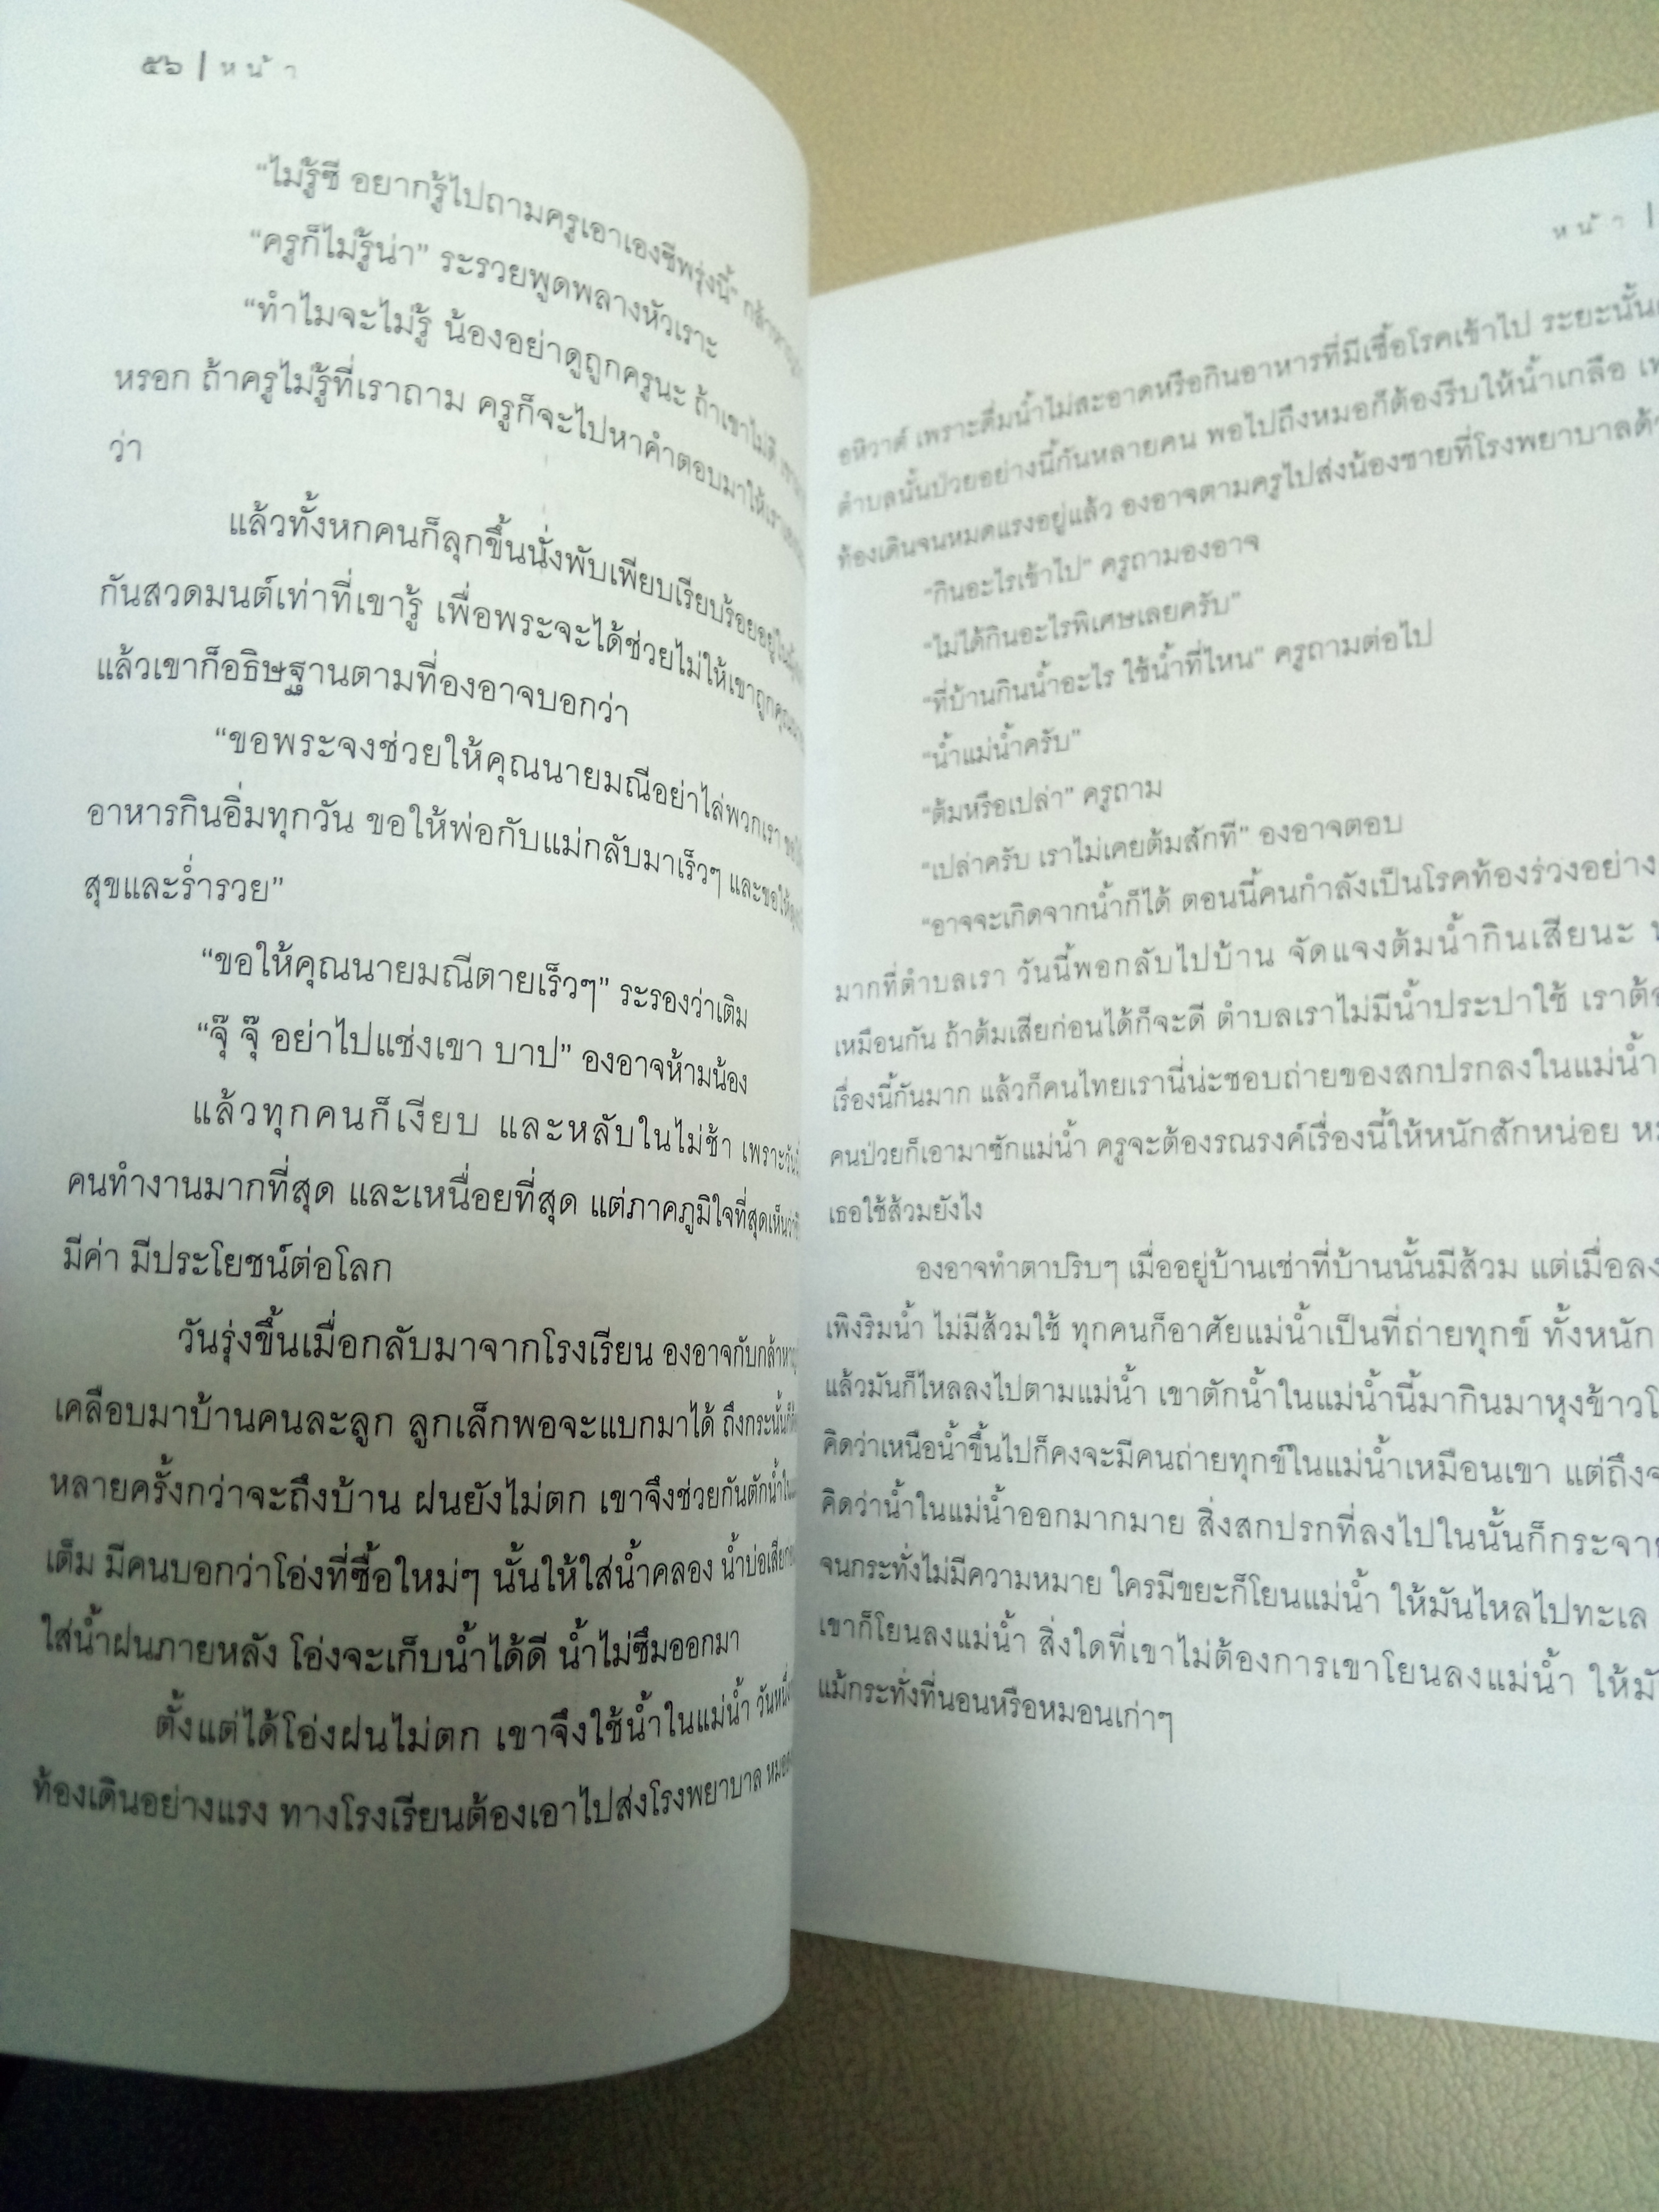 ๕๖ | ห น ้ า
“ไม่รู้ซี อยากรู้ไปถามครูเอาเองซีพรุ่งนี้”
“ครูก็ไม่รู้น่า” ระรวยพูดพลางหัวเราะ
“ทำไมจะไม่รู้ น้องอย่าดูถูกครูนะ ถ้าเขาไม่ดี
หรอก ถ้าครูไม่รู้ที่เราถาม ครูก็จะไปหาคำตอบมาให้เรา
ว่า
แล้วทั้งหกคนก็ลุกขึ้นนั่งพับเพียบเรียบร้อยอยู่ใน
กันสวดมนต์เท่าที่เขารู้ เพื่อพระจะได้ช่วยไม่ให้เขาถูก
แล้วเขาก็อธิษฐานตามที่องอาจบอกว่า
“ขอพระจงช่วยให้คุณนายมณีอย่าไล่พวกเรา
อาหารกินอิ่มทุกวัน ขอให้พ่อกับแม่กลับมาเร็วๆ และขอให้
สุขและร่ำรวย”
“ขอให้คุณนายมณีตายเร็วๆ” ระรองว่าเติม
“จุ๊ จุ๊ อย่าไปแช่งเขา บาป” องอาจห้ามน้อง
แล้วทุกคนก็เงียบ และหลับในไม่ช้า เพราะวัน
คนทำงานมากที่สุด และเหนื่อยที่สุด แต่ภาคภูมิใจที่สุด
มีค่า มีประโยชน์ต่อโลก
วันรุ่งขึ้นเมื่อกลับมาจากโรงเรียน องอาจกับ
เคลือบมาบ้านคนละลูก ลูกเล็กพอจะแบกมาได้ ถึงกระนั้น
หลายครั้งกว่าจะถึงบ้าน ฝนยังไม่ตก เขาจึงช่วยกันตักน้ำ
เต็ม มีคนบอกว่าโอ่งที่ซื้อใหม่ๆ นั้นให้ใส่น้ำคลอง น้ำบ่อ
ใส่น้ำฝนภายหลัง โอ่งจะเก็บน้ำได้ดี น้ำไม่ซึมออกมา
ตั้งแต่ได้โอ่งฝนไม่ตก เขาจึงใช้น้ำในแม่น้ำ วันหนึ่ง
ท้องเดินอย่างแรง ทางโรงเรียนต้องเอาไปส่งโรงพยาบาล
ห น ้ า |
อหิวาต์ เพราะดื่มน้ำไม่สะอาดหรือกินอาหารที่มีเชื้อโรคเข้าไป ระยะนั้น
ตำบลนั้นป่วยอย่างนี้กันหลายคน พอไปถึงหมอก็ต้องรีบให้น้ำเกลือ
ท้องเดินจนหมดแรงอยู่แล้ว องอาจตามครูไปส่งน้องชายที่โรงพยาบาล
“กินอะไรเข้าไป” ครูถามองอาจ
“ไม่ได้กินอะไรพิเศษเลยครับ”
“ที่บ้านกินน้ำอะไร ใช้น้ำที่ไหน” ครูถามต่อไป
“น้ำแม่น้ำครับ”
“ต้มหรือเปล่า” ครูถาม
“เปล่าครับ เราไม่เคยต้มสักที” องอาจตอบ
“อาจจะเกิดจากน้ำก็ได้ ตอนนี้คนกำลังเป็นโรคท้องร่วงอย่าง
มากที่ตำบลเรา วันนี้พอกลับไปบ้าน จัดแจงต้มน้ำกินเสียนะ
เหมือนกัน ถ้าต้มเสียก่อนได้ก็จะดี ตำบลเราไม่มีน้ำประปาใช้
เรื่องนี้กันมาก แล้วก็คนไทยเรานี่น่ะชอบถ่ายของสกปรกลงในแม่น้ำ
คนป่วยก็เอามาซักแม่น้ำ ครูจะต้องรณรงค์เรื่องนี้ให้หนักสักหน่อย
เธอใช้ส้วมยังไง
องอาจทำตาปริบๆ เมื่ออยู่บ้านเช่าที่บ้านนั้นมีส้วม แต่เมื่อลง
เพิงริมน้ำ ไม่มีส้วมใช้ ทุกคนก็อาศัยแม่น้ำเป็นที่ถ่ายทุกข์ ทั้งหนัก
แล้วมันก็ไหลลงไปตามแม่น้ำ เขาตักน้ำในแม่น้ำนี้มากินมาหุงข้าว
คิดว่าเหนือน้ำขึ้นไปก็คงจะมีคนถ่ายทุกข์ในแม่น้ำเหมือนเขา แต่ถึง
คิดว่าน้ำในแม่น้ำออกมากมาย สิ่งสกปรกที่ลงไปในนั้นก็กระจาย
จนกระทั่งไม่มีความหมาย ใครมีขยะก็โยนแม่น้ำ ให้มันไหลไปทะเล
เขาก็โยนลงแม่น้ำ สิ่งใดที่เขาไม่ต้องการเขาโยนลงแม่น้ำ ให้
แม้กระทั่งที่นอนหรือหมอนเก่าๆ